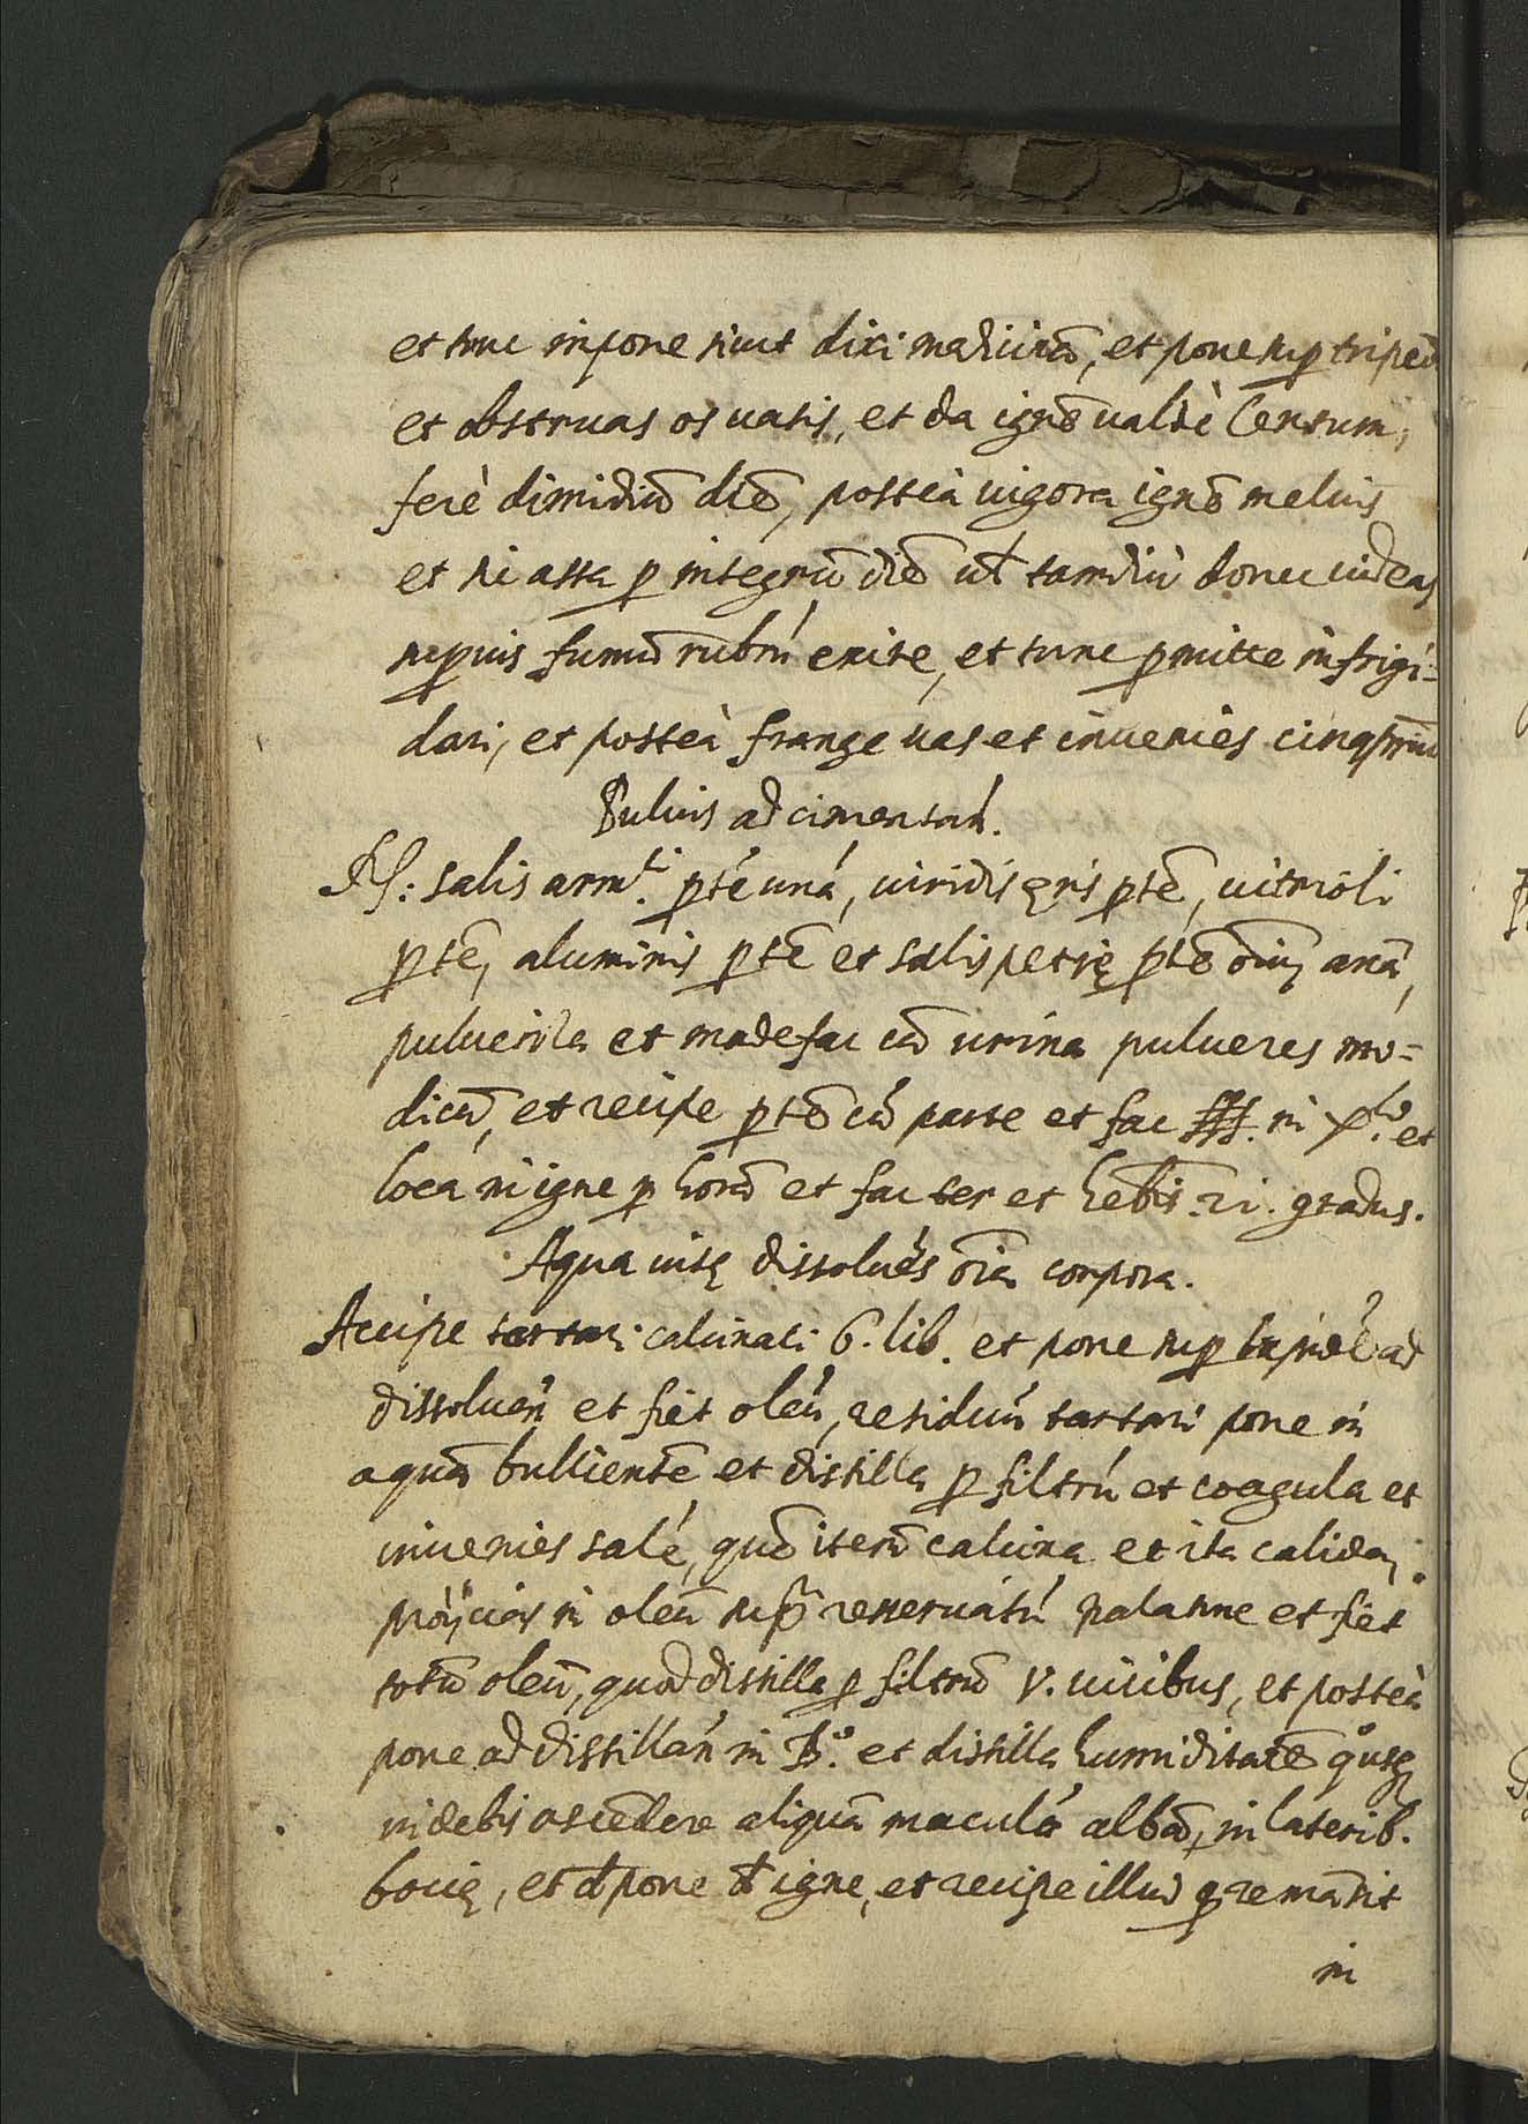 et tunc inpone sicut dixi medicinā, et pone sup tripedē
et obstruas os uasis, et da ignē ualdè lentum,
ferè dimidiū diē, posteà uigora ignē melius
et sic assa p integrū diē ul tamdiù donec uideas
superius fumū rubrú exire, et tunc pmitte infrigi=
dari, et posteà frange uas et inuenies cinabriū
Puluis ad cimentań.
Rͨ: salis armⁱ. pté uná, uiridis ęris ptē, uitrioli
ptē, aluminis ptē et salis petrę ptē oīuȝ anā,
pulueriza et madefac cū urina pulueres mo=
dicū, et recipe ptē cū parte et fac sss. in et
loca in igne p horā et fac ter et hebis .21. gradus.
Aqua uitę dissolués oīa corpora.
Accipe tartari calcinati 6. lib. et pone sup lapidē ad
dissoluen̄ et fiet oleú, residuú tartari pone in
aquā bullientē et distilla p filtrú et coagula et
inuenies salé, quē iterū calcina et ita calida,
proÿcias in oleū sup̄ reseruatú et fiet
totū oleū, quod distilla p filtrū V. uicibus, et posteà
pone ad distillań in B.° et distilla humiditatē qousȝ
uidebis ascēdere aliquā maculá albā, in laterib.
bocię, et dpone igne, et recipe illud q remāsit
in